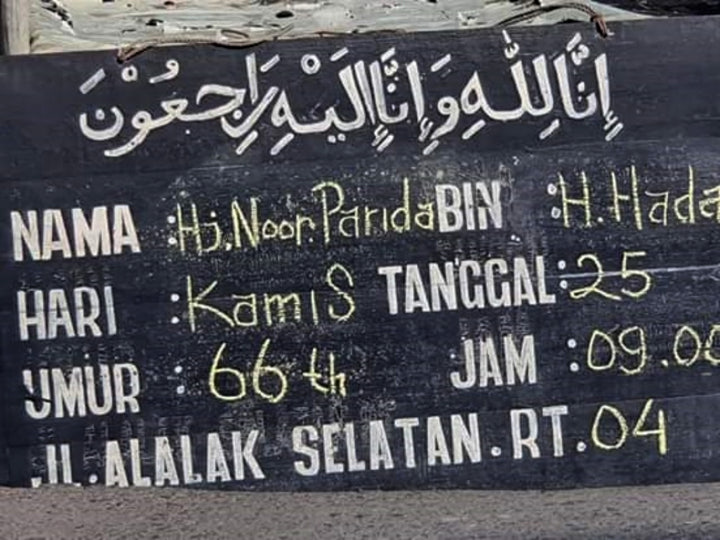 إِنَّا لِلّٰهِ وَإِنَّا إِلَيْهِ رَاجِعُوْنَ
NAMA : Hj. Noor Parida BIN : H. Hada
HARI : KamiS TANGGAL : 25
UMUR : 66 th JAM : 09.00
JL. ALALAK SELATAN. RT. 04